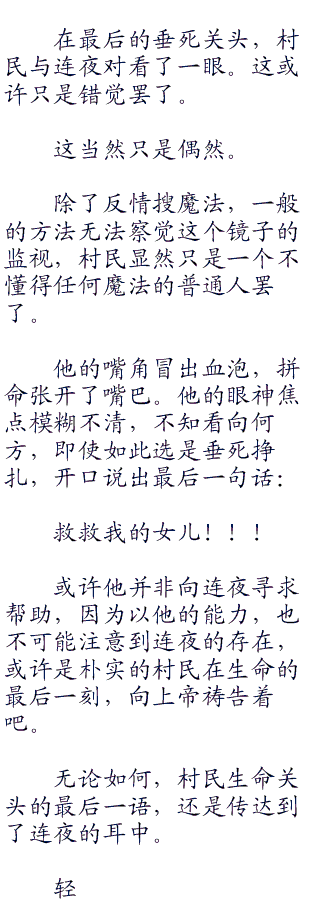 在最后的垂死关头，村
民与连夜对看了一眼。这或
许只是错觉罢了。
这当然只是偶然。
除了反情搜魔法，一般
的方法无法察觉这个镜子的
监视，村民显然只是一个不
懂得任何魔法的普通人罢
了。
他的嘴角冒出血泡，拼
命张开了嘴巴。他的眼神焦
点模糊不清，不知看向何
方，即使如此选是垂死挣
扎，开口说出最后一句话：
救救我的女儿！！！
或许他并非向连夜寻求
帮助，因为以他的能力，也
不可能注意到连夜的存在，
或许是朴实的村民在生命的
最后一刻，向上帝祷告着
吧。
无论如何，村民生命关
头的最后一语，还是传达到
了连夜的耳中。
轻